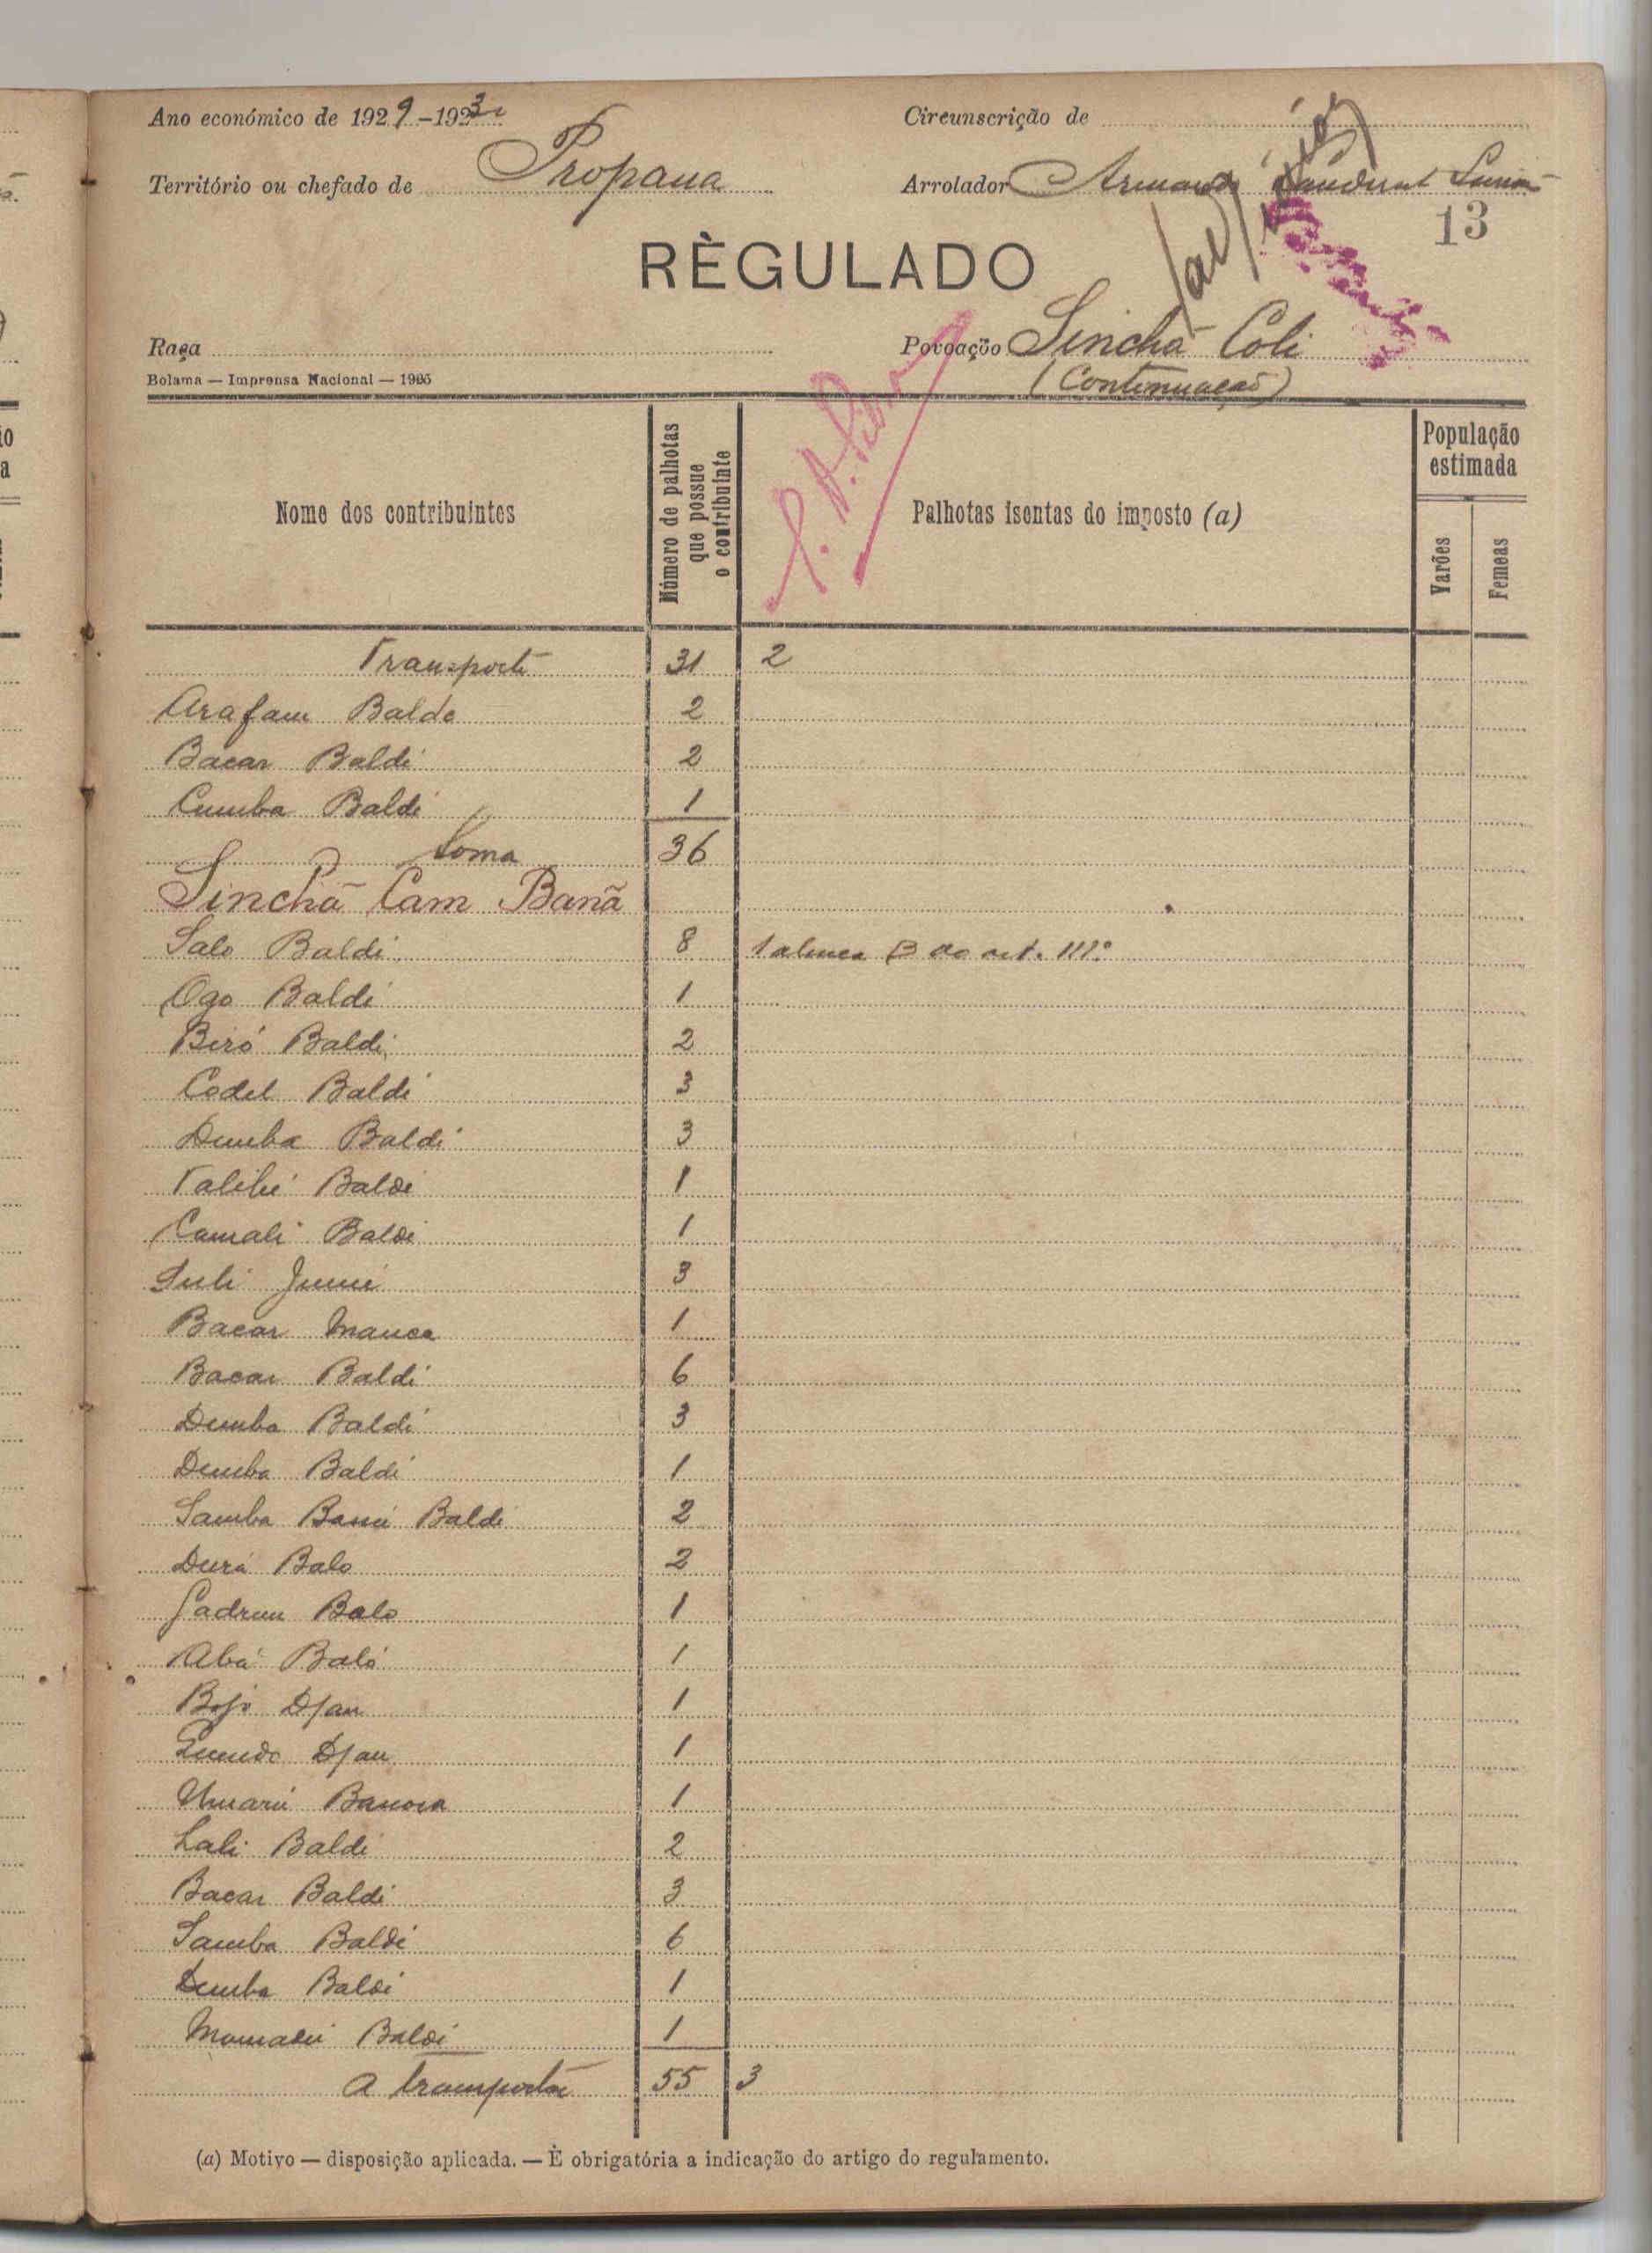 Ano económico de 1929-1930
Circunscrição de
Território ou chefado de Propana
Arrolador Armando
13
RÈGULADO
Raça
Povoação Sinchã Coli
(Continuação)
Bolama — Imprensa Nacional — 1925
Nome dos contribuintes
Número de palhotas
que possue
o contribuinte
Palhotas isentas do imposto (a)
População
estimada
Varões
Femeas
Transporte 31 2
Arafam Balde 2
Bacar Baldé 2
Cumba Baldé 1
Soma 36
Sinchã Cam Banã
Salo Baldé 8 1 alinea B do art. 111º
Ogo Baldé 1
Biró Baldé 2
Codel Baldé 3
Demba Baldé 3
Talibé Baldé 1
Camali Baldé 1
Suli Jumé 3
Bacar Manca 1
Bacar Baldé 6
Demba Baldé 3
Demba Baldé 1
Samba Baldé 2
Durá Balo 2
Balo 1
Abá Baló 1
Bojo Djau 1
Djau 1
Umarú 1
Lali Baldé 2
Bacar Baldé 3
Samba Baldé 6
Demba Baldé 1
Mamadú Baldé 1
A transportar 55 3
(a) Motivo — disposição aplicada. — È obrigatória a indicação do artigo do regulamento.